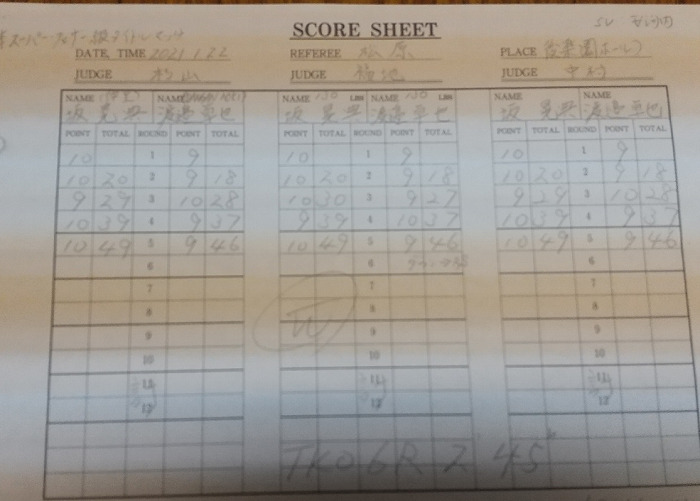 SCORE SHEET
DATE, TIME 2021.1.22 REFEREE 松原 PLACE 後楽園ホール
JUDGE 杉山 JUDGE 福地 JUDGE 中村
NAME NAME NAME 130 LBS NAME 130 LBS NAME NAME
坂 晃典 渡邉卓也 坂 晃典 渡邉卓也 坂 晃典 渡邉卓也
POINT TOTAL ROUND POINT TOTAL POINT TOTAL ROUND POINT TOTAL POINT TOTAL ROUND POINT TOTAL
10 1 9 10 1 9 10 1 9
10 20 2 9 18 10 20 2 9 18 10 20 2 9 18
9 29 3 10 28 10 30 3 9 27 9 29 3 10 28
10 39 4 9 37 9 39 4 10 37 10 39 4 9 37
10 49 5 9 46 10 49 5 9 46 10 49 5 9 46
6 6 6
7 7 7
8 8 8
9 9 9
10 10 10
11 11 11
12 12 12
TKO 6R 2'45"